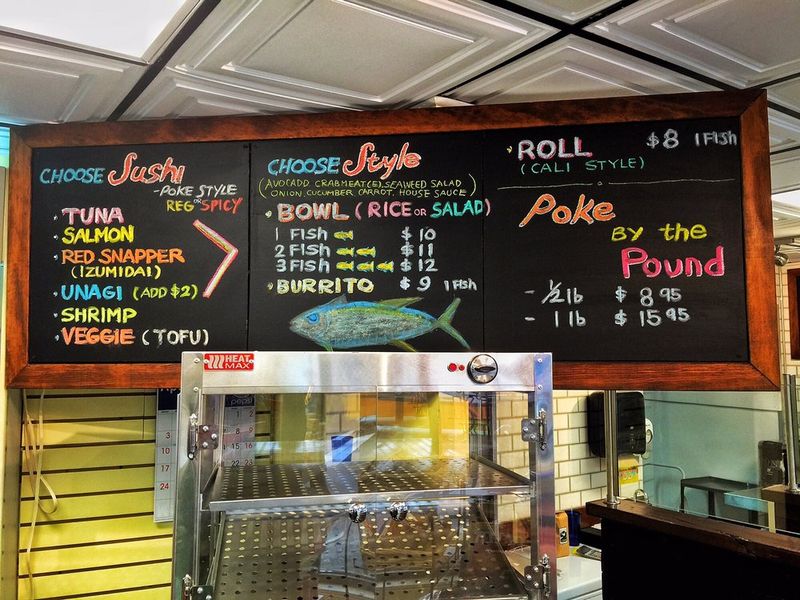 CHOOSE Sushi
-POKE STYLE
REG OR SPICY
· TUNA
· SALMON
· RED SNAPPER
(IZUMIDAI)
· UNAGI (ADD $2)
· SHRIMP
· VEGGIE (TOFU)
CHOOSE Style
(AVOCADO, CRABMEAT(E), SEAWEED SALAD
ONION, CUCUMBER CARROT, HOUSE SAUCE)
· BOWL (RICE OR SALAD)
1 FISH $10
2 FISH $11
3 FISH $12
· BURRITO $9 1 FISH
· ROLL $8 1 FISH
(CALI STYLE)
Poke
BY the
Pound
- 1/2 lb $8.95
- 1 lb $15.95
HEAT
MAX
pepsi
3
10
17
24
1 2
8 9
15 16
22 23